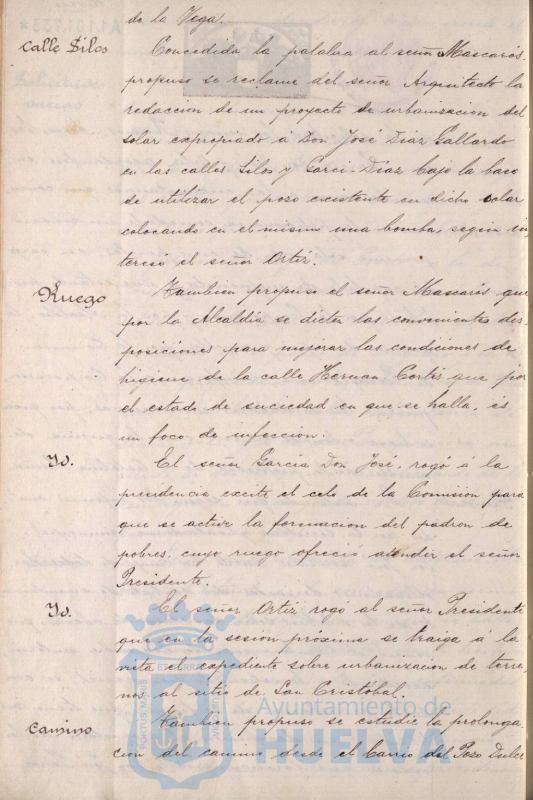 de la Vega.
Calle Silos
Concedida la palabra al señor Mascarós
propuso se reclame del señor Arquitecto la
redaccion de un proyecto de urbanizacion del
solar expropiado á Don José Diaz Gallardo
en las calles Silos y Garci-Diaz bajo la base
de utilizar el pozo existente en dicho solar
colocando en el mismo una bomba, segun in
teresó el señor Ortiz.
Ruego
Tambien propuso el señor Mascarós que
por la Alcaldía se dicten las convenientes dis-
posiciones para mejorar las condiciones de
higiene de la calle Hernan Cortés que por
el estado de suciedad en que se halla, es
un foco de infeccion.
Id.
El señor Garcia Don José, rogó á la
presidencia excite el celo de la Comisión para
que se active la formacion del padron de
pobres, cuyo ruego ofreció atender el señor
Presidente.
Id.
El señor Ortiz rogó al señor Presidente
que en la sesión próxima se traiga á la
vista el expediente sobre urbanizacion de terre-
nos al sitio de San Cristóbal.
Camino
Tambien propuso se estudie la prolonga
cion del camino desde el barrio del Pozo Dulce
Ayuntamiento de
HUELVA